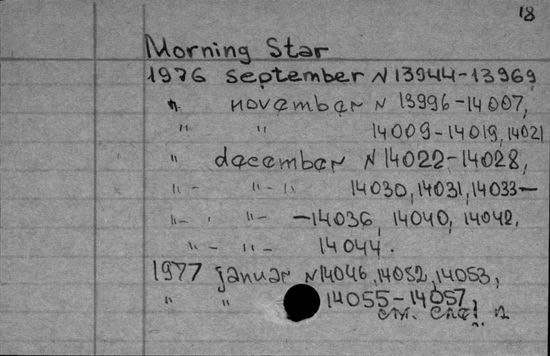 18
Morning Star
1976 september N 13944-13969
" november N 13996-14007,
" " 14009-14019, 14021
" december N 14022-14028,
"- "- " 14030, 14031, 14033-
"- " "- -14036, 14040, 14042,
"- "- 14044.
1977 januar N 14046, 14052, 14053,
" " 14055-14057,
см. след.